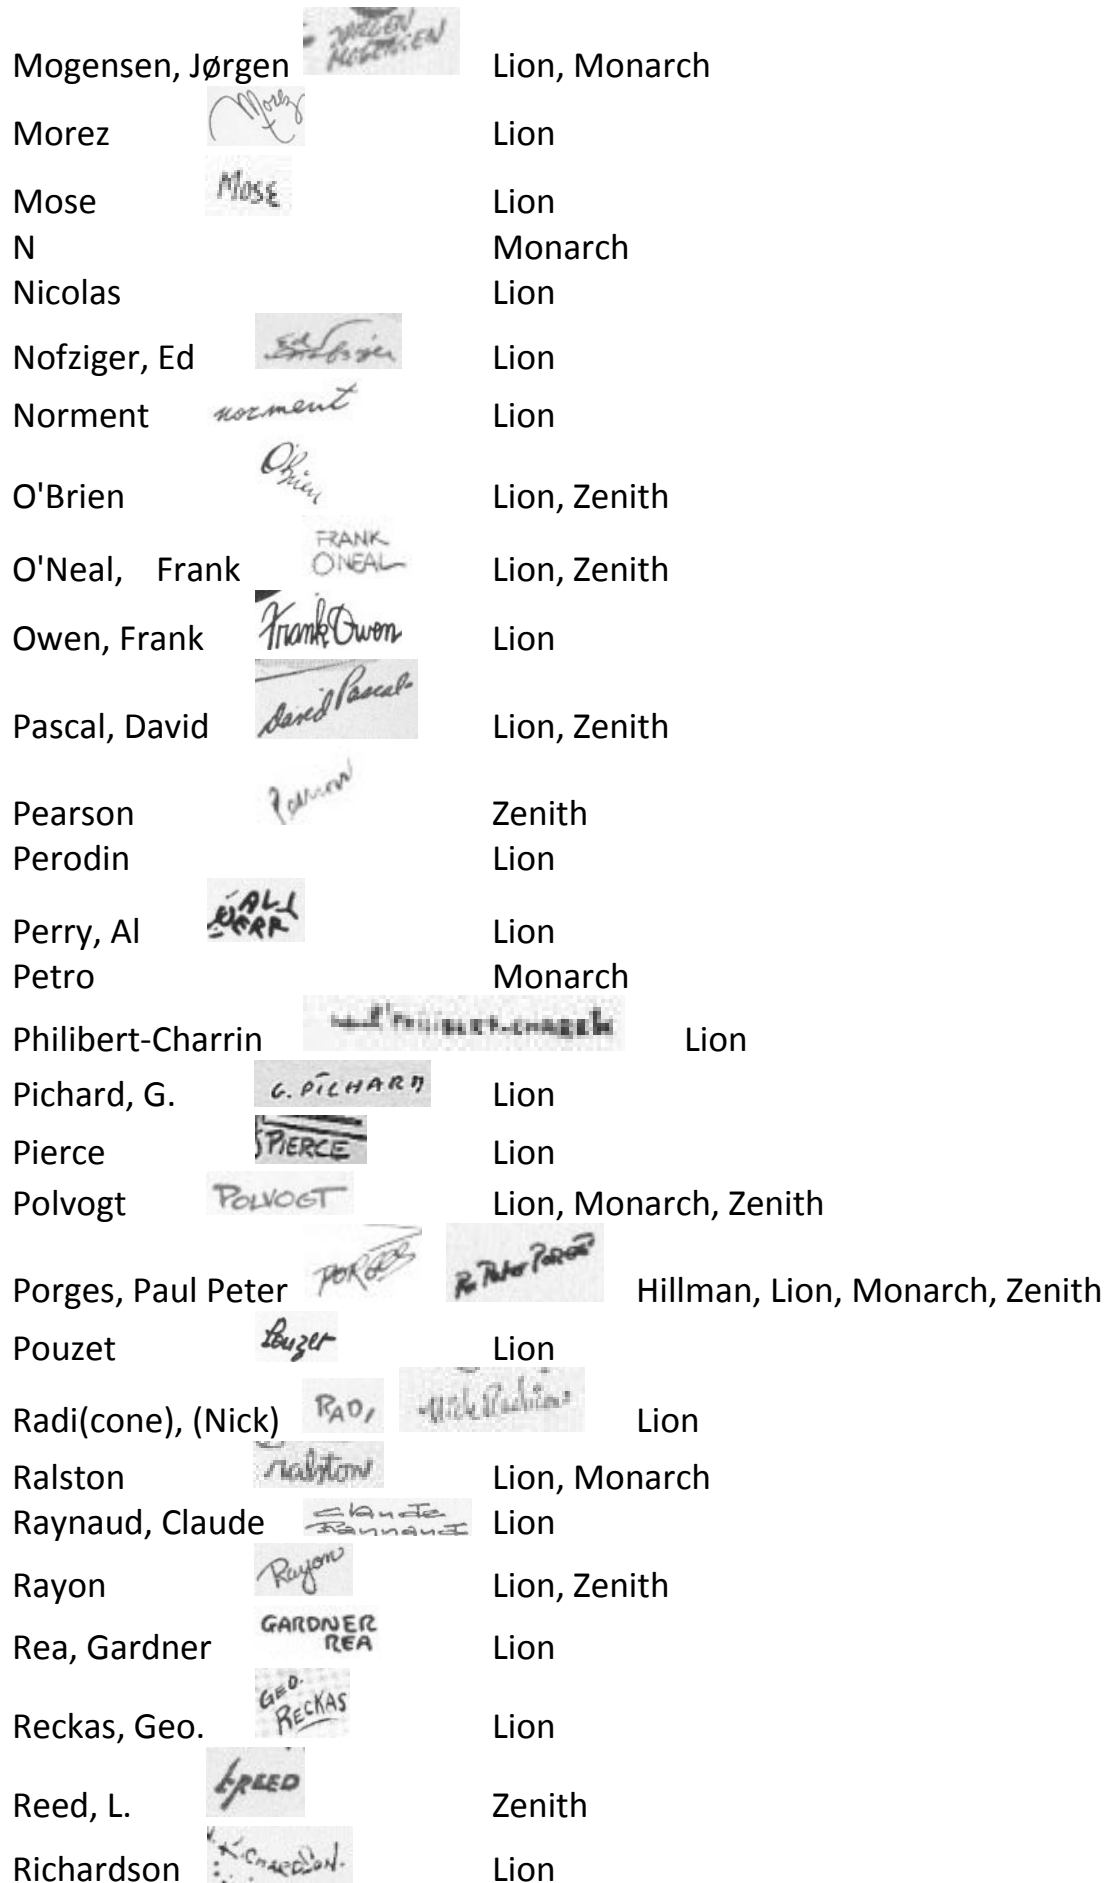 Mogensen, Jørgen JØRGEN MOGENSEN Lion, Monarch
Morez Morez Lion
Mose MOSE Lion
N Monarch
Nicolas Lion
Nofziger, Ed Ed Nofziger Lion
Norment norment Lion
O'Brien O'Brien Lion, Zenith
O'Neal, Frank FRANK O'NEAL Lion, Zenith
Owen, Frank Frank Owen Lion
Pascal, David David Pascal Lion, Zenith
Pearson Pearson Zenith
Perodin Lion
Perry, Al AL PERRY Lion
Petro Monarch
Philibert-Charrin PHILIBERT-CHARRIN Lion
Pichard, G. G. PICHARD Lion
Pierce PIERCE Lion
Polvogt POLVOGT Lion, Monarch, Zenith
Porges, Paul Peter PORGES Peter PORGES Hillman, Lion, Monarch, Zenith
Pouzet Pouzet Lion
Radi(cone), (Nick) RADI Nick Radicone Lion
Ralston ralston Lion, Monarch
Raynaud, Claude Claude Raynaud Lion
Rayon Rayon Lion, Zenith
Rea, Gardner GARDNER REA Lion
Reckas, Geo. GEO. RECKAS Lion
Reed, L. L. REED Zenith
Richardson RICHARDSON. Lion